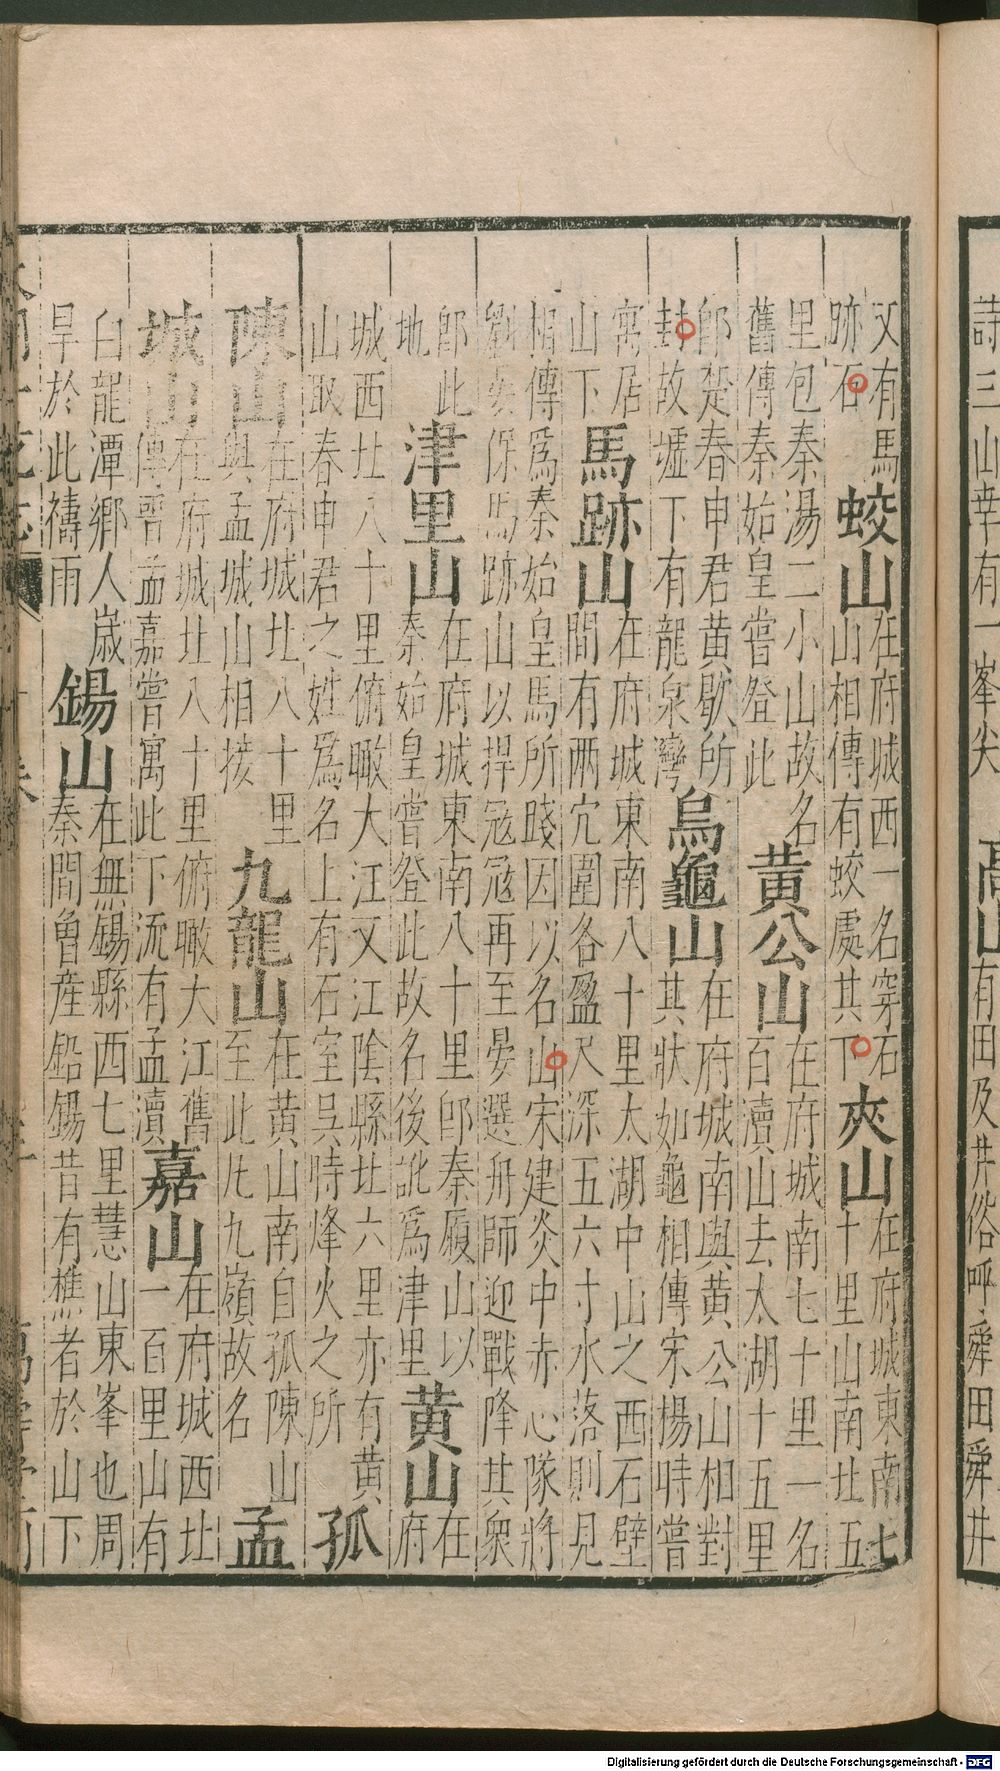 詩三山幸有一峯尖
高山
有田及井俗呼舜田舜井
又有馬
跡石
蛟山
在府城西一名穿石
山相傳有蛟處其下
夾山
在府城東南七
十里山南北五
里包秦湯二小山故名
舊傳秦始皇嘗登此
黄公山
在府城南七十里一名
百瀆山去太湖十五里
即楚春申君黄歇所
封故墟下有龍泉灣
烏龜山
在府城南與黄公山相對
其狀如龜相傳宋楊時嘗
寓居
山下
馬跡山
在府城東南八十里太湖中山之西石壁
間有兩穴圍各盈尺深五六寸水落則見
相傳爲秦始皇馬所踐因以名山宋建炎中赤心隊將
劉晏保馬跡山以捍冦冦再至晏選舟師迎戰降其衆
即此
地
津里山
在府城東南八十里即秦履山以
秦始皇嘗登此故名後訛爲津里
黄山
在
府
城西北八十里俯瞰大江又江陰縣北六里亦有黄
山取春申君之姓爲名上有石室吳時烽火之所
孤
陳山
在府城北八十里
與孟城山相接
九龍山
在黄山南自孤陳山
至此凡九嶺故名
孟
城山
在府城北八十里俯瞰大江舊
傳晉孟嘉嘗寓此下流有孟瀆
嘉山
在府城西北
一百里山有
白龍潭鄉人歲
旱於此禱雨
錫山
在無錫縣西七里慧山東峯也周
秦間魯産鉛錫昔有樵者於山下
Digitalisierung gefördert durch die Deutsche Forschungsgemeinschaft - DFG